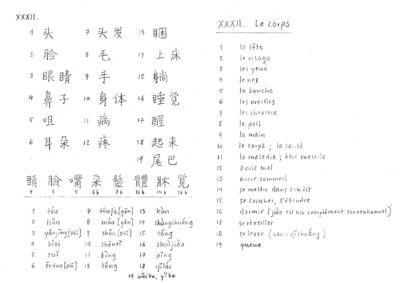 XXXII.
1 头 7 头发 13 困
2 脸 8 毛 14 上床
3 眼睛 9 手 15 躺
4 鼻子 10 身体 16 睡觉
5 咀 11 病 17 醒
6 耳朵 12 疼 18 起来
19 尾巴
頭 臉 嘴 朵 髮 體 牀 覺
1 tóu 7 tóufà 13 kùn
2 liǎn 8 máo 14 shàngchuáng
3 yǎnjīng 9 shǒu 15 tǎng
4 bízi 10 shēntǐ 16 shuìjiào
5 zuǐ 11 bìng 17 xǐng
6 ěrduo 12 téng 18 qǐlái
19 wěiba, yǐba
XXXII. Le corps
1 la tête
2 le visage
3 les yeux
4 le nez
5 la bouche
6 les oreilles
7 les cheveux
8 le poil
9 la main
10 le corps ; la santé
11 la maladie ; être malade
12 avoir mal
13 avoir sommeil
14 se mettre dans son lit
15 se coucher, s'étendre
16 dormir (jiào est un complément conventionnel)
17 se réveiller
18 se lever (var.: qǐchuáng)
19 queue